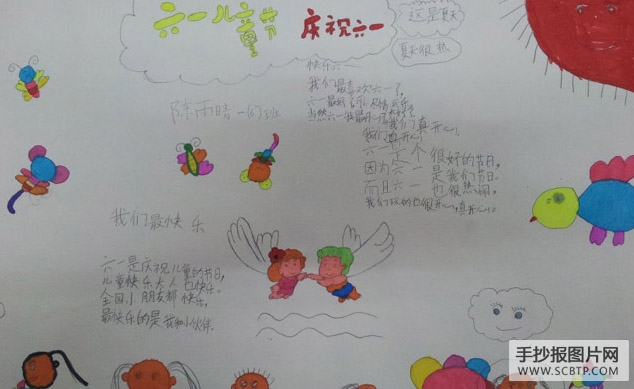 六一儿童节
庆祝六一
这是夏天
夏天很热
快乐六一
我们最喜欢六一了,
陈雨晴一(4)班
我们真开心,
六一是个很好的节日,
因为六一是我们节日,
而且六一也很热闹。
我们玩的也很开心,真开心。
我们最快乐
六一是庆祝儿童的节日,
儿童快乐大人也快乐。
全国小朋友都快乐,
最快乐的是我和小伙伴。
手抄报图片网
WWW.SCBTP.COM